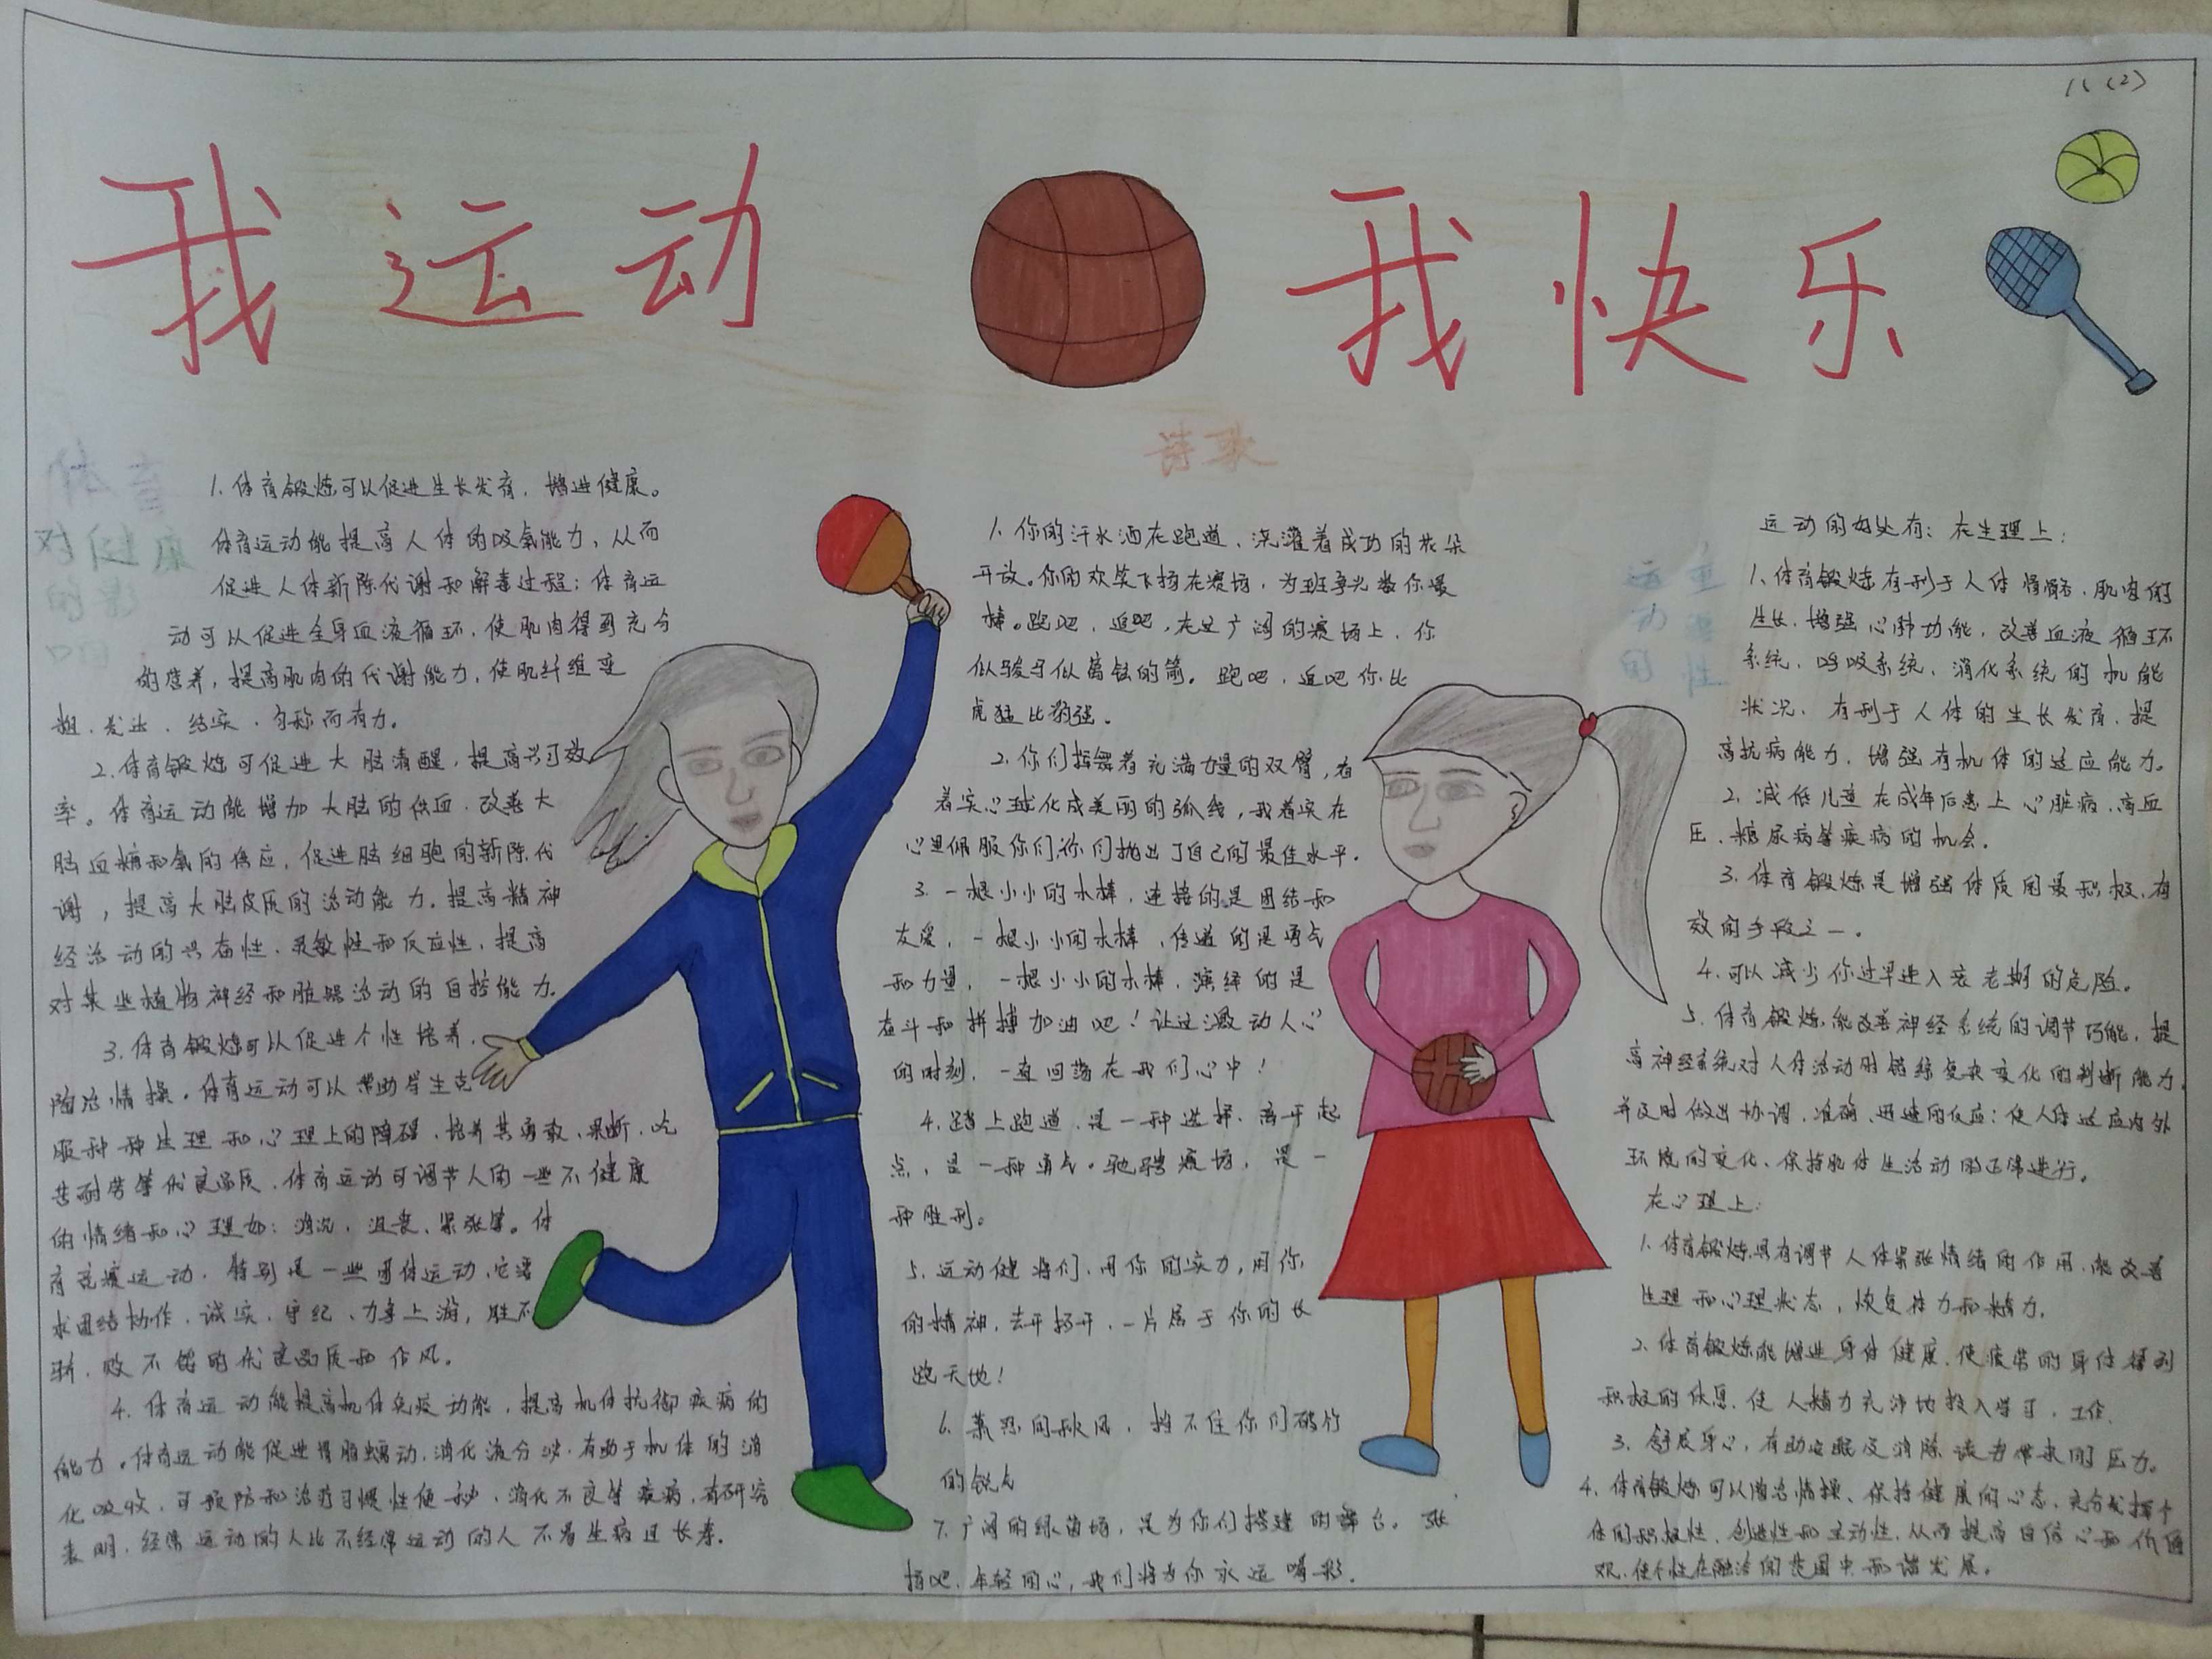 八(2)
我运动 我快乐
体育
对健康
的影
响
1. 体育锻炼可以促进生长发育，增进健康。
体育运动能提高人体的吸氧能力，从而
促进人体新陈代谢和解毒过程；体育运
动可以促进全身血液循环，使肌肉得到充分
的营养，提高肌肉的代谢能力，使肌纤维变
粗、发达、结实、匀称而有力。
2. 体育锻炼可促进大脑清醒，提高学习效
率。体育运动能增加大脑的供血，改善大
脑血糖和氧的供应，促进脑细胞的新陈代
谢，提高大脑皮质的活动能力。提高精神
经活动的兴奋性、灵敏性和反应性，提高
对某些植物神经和脏器活动的自控能力。
3. 体育锻炼可以促进个性培养，
陶冶情操。体育运动可以帮助学生克
服种种生理和心理上的障碍，培养其勇敢、果断、吃
苦耐劳等优良品质，体育运动可调节人的一些不健康
的情绪和心理如：消沉、沮丧、紧张等。体
育竞赛运动，特别是一些团体运动，它需
求团结协作、诚实、守纪、力争上游，胜不
骄、败不馁的优良品质和作风。
4. 体育运动能提高机体免疫功能，提高机体抗御疾病的
能力。体育运动能促进胃肠蠕动，消化液分泌，有助于机体的消
化吸收，可预防和治疗习惯性便秘、消化不良等疾病，有研究
表明，经常运动的人比不经常运动的人不易生病且长寿。
诗歌
1. 你的汗水洒在跑道，浇灌着成功的花朵
开放。你的欢笑飞扬在赛场，为班争光数你最
棒。跑吧，追吧，在这广阔的赛场上，你
似骏马似离弦的箭。跑吧，追吧你比
虎猛比豹强。
2. 你们挥舞着充满力量的双臂，看
着实心球化成美丽的弧线，我着实在
心里佩服你们，你们抛出了自己的最佳水平。
3. 一根小小的木棒，连接的是团结和
友爱，一根小小的木棒，传递的是勇气
和力量，一根小小的木棒，演绎的是
奋斗和拼搏加油吧！让这激动人心
的时刻，一直回荡在我们心中！
4. 踏上跑道，是一种选择，离开起
点，是一种勇气。驰骋赛场，是一
种胜利。
5. 运动健将们，用你的实力，用你
的精神，去开拓开，一片属于你的长
跑天地！
6. 萧瑟的秋风，挡不住你们破竹
的锐气
7. 广阔的绿茵场，是为你们搭建的舞台。张
扬吧，年轻的心，我们将为你永远喝彩。
运动的
重要性
运动的好处有：在生理上：
1. 体育锻炼有利于人体骨骼、肌肉的
生长，增强心肺功能，改善血液循环
系统、呼吸系统、消化系统的机能
状况，有利于人体的生长发育，提
高抗病能力，增强有机体的适应能力。
2. 减低儿童在成年后患上心脏病、高血
压、糖尿病等疾病的机会。
3. 体育锻炼是增强体质的最积极、有
效的手段之一。
4. 可以减少你过早进入衰老期的危险。
5. 体育锻炼能改善神经系统的调节巧能，提
高神经系统对人体活动时错综复杂变化的判断能力，
并及时做出协调、准确、迅速的反应；使人体适应内外
环境的变化、保持肌体生活动的正常进行。
在心理上：
1. 体育锻炼具有调节人体紧张情绪的作用，能改善
生理和心理状态，恢复体力和精力。
2. 体育锻炼能增进身体健康，使疲劳的身体得到
积极的休息，使人精力充沛地投入学习、工作。
3. 舒展身心，有助安眠及消除读书带来的压力。
4. 体育锻炼可以陶冶情操、保持健康的心态，充分发挥个
体的积极性、创造性和主动性，从而提高自信心和价值
观，使个性在融洽的氛围中和谐发展。